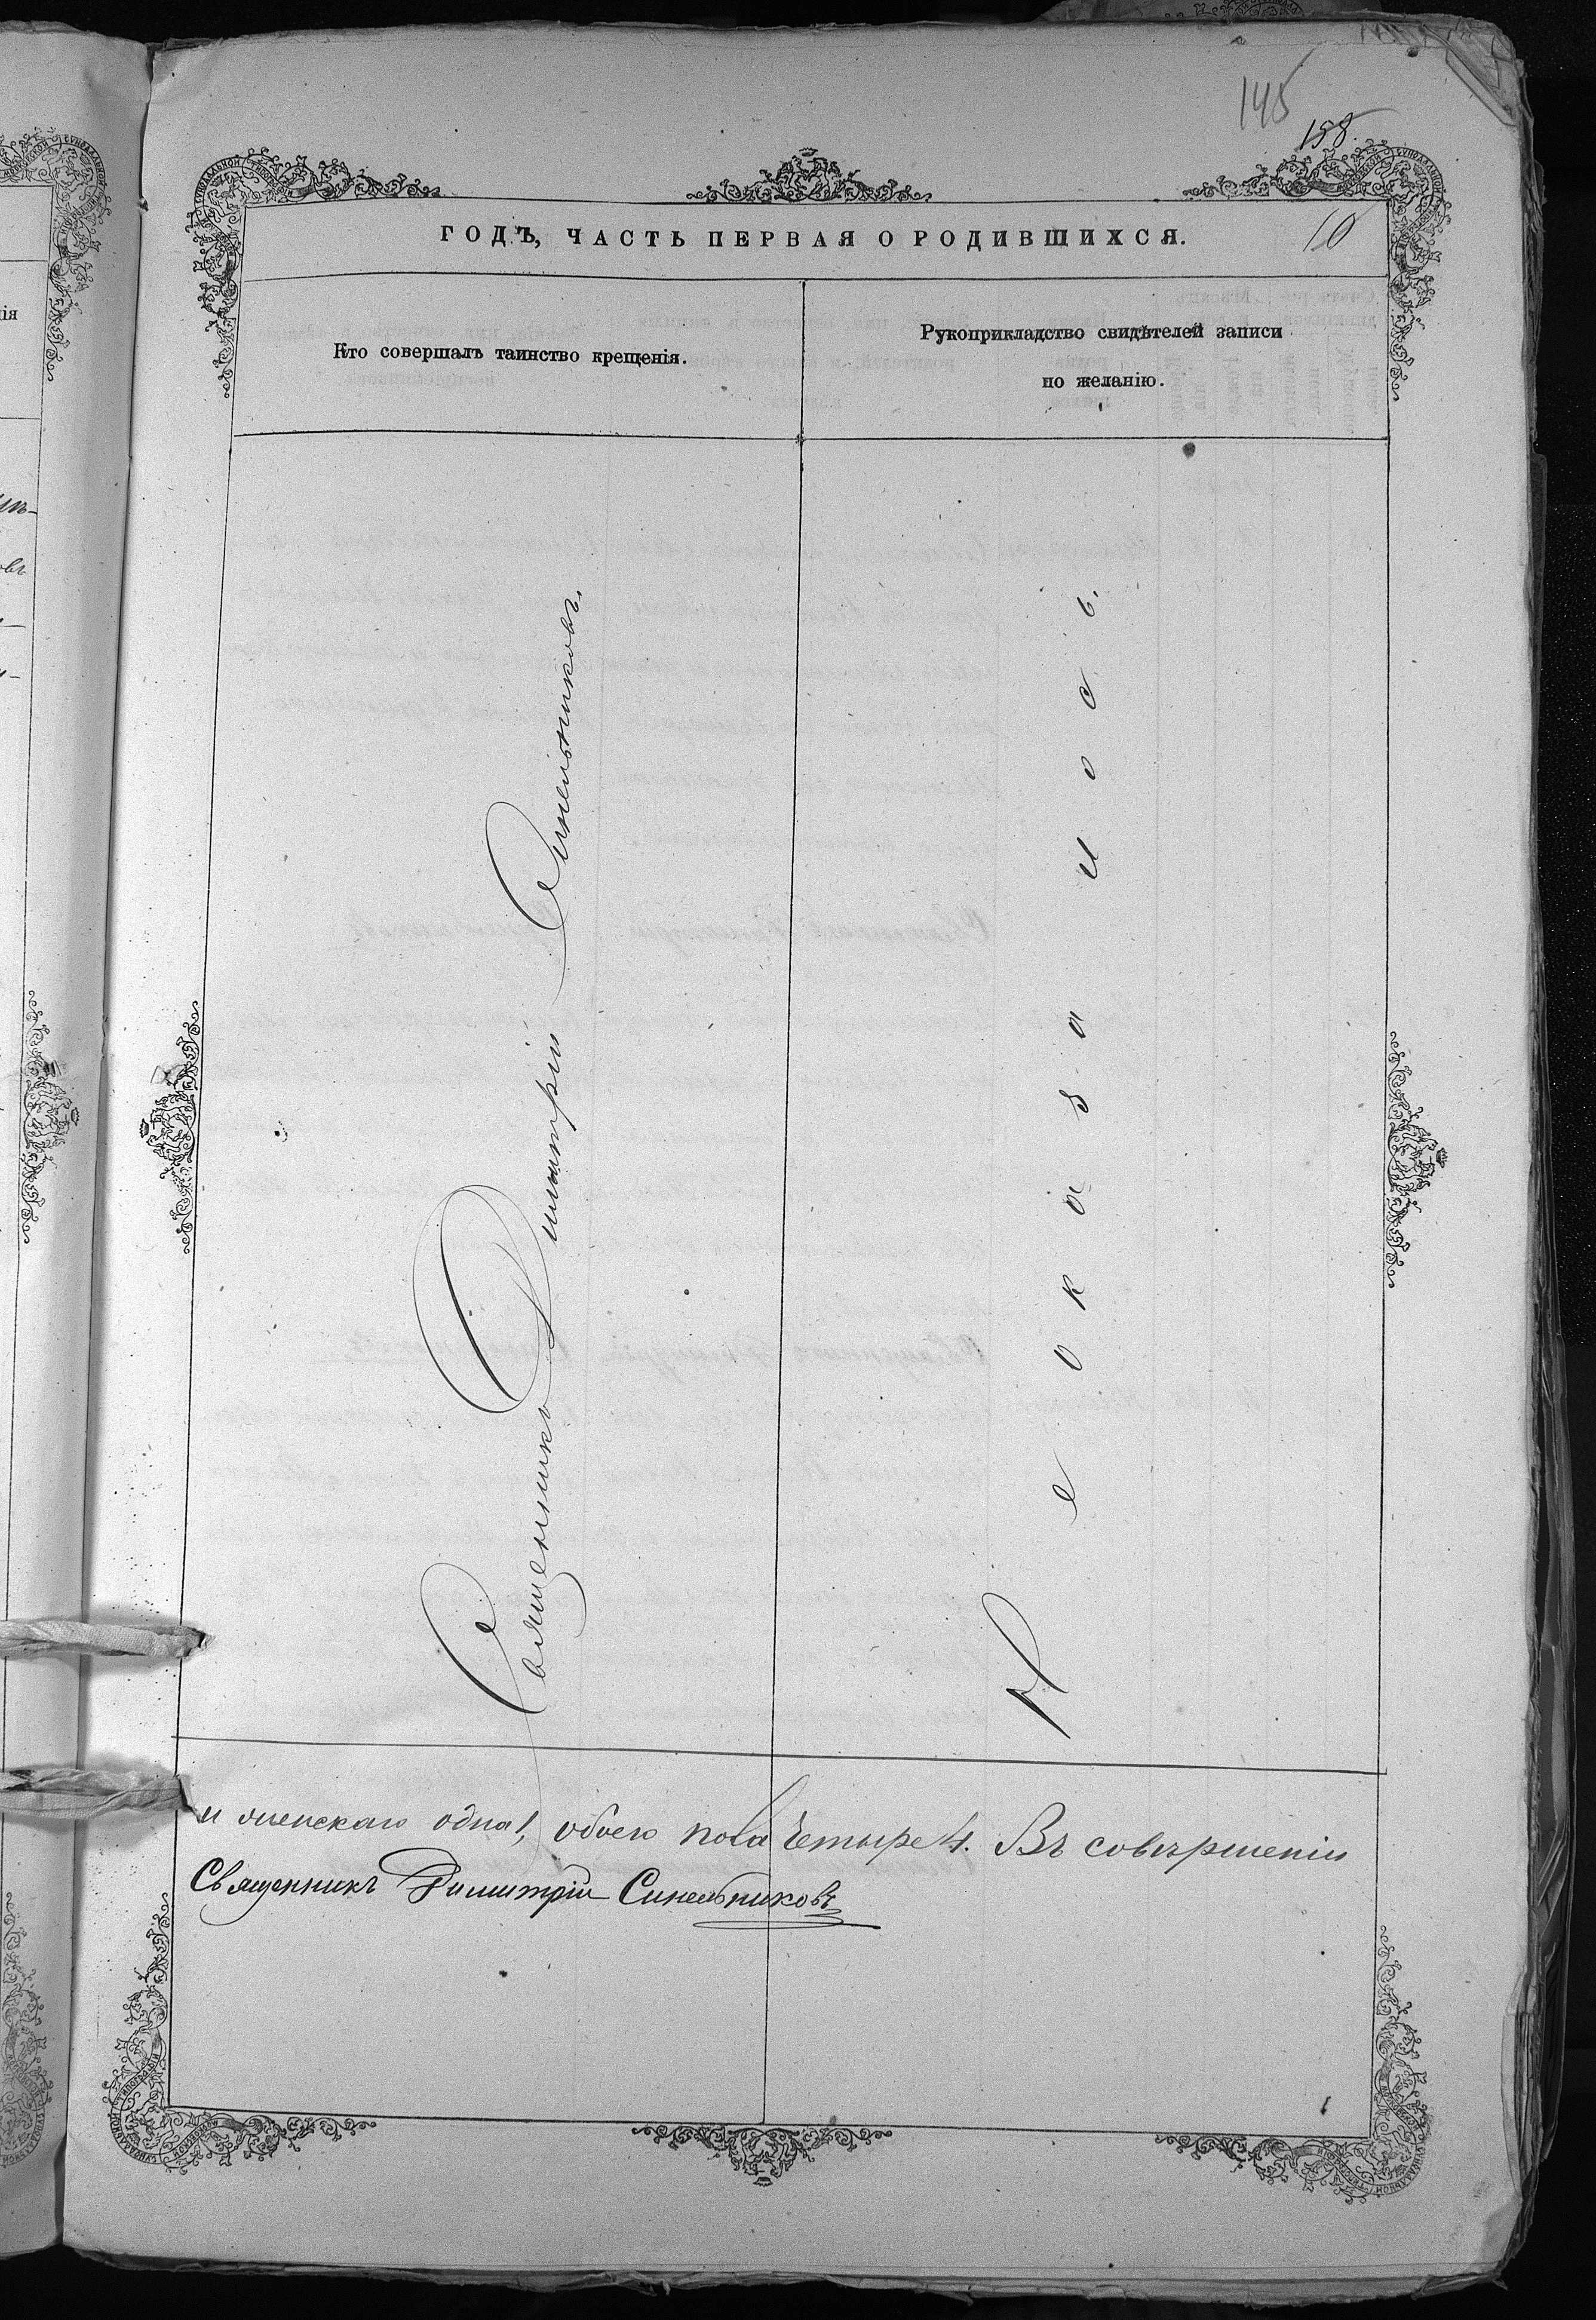 145
158.
ГОДЪ, ЧАСТЬ ПЕРВАЯ О РОДИВШИХСЯ.
10
Кто совершалъ таинство крещенія.
Рукоприкладство свидѣтелей записи
по желанію.
Священникъ Димитрій Синельниковъ.
Не оказалось.
и женскаго одна 1, обоего пола четыре 4. Въ совершеніи
Священникъ Димитрій Синельниковъ